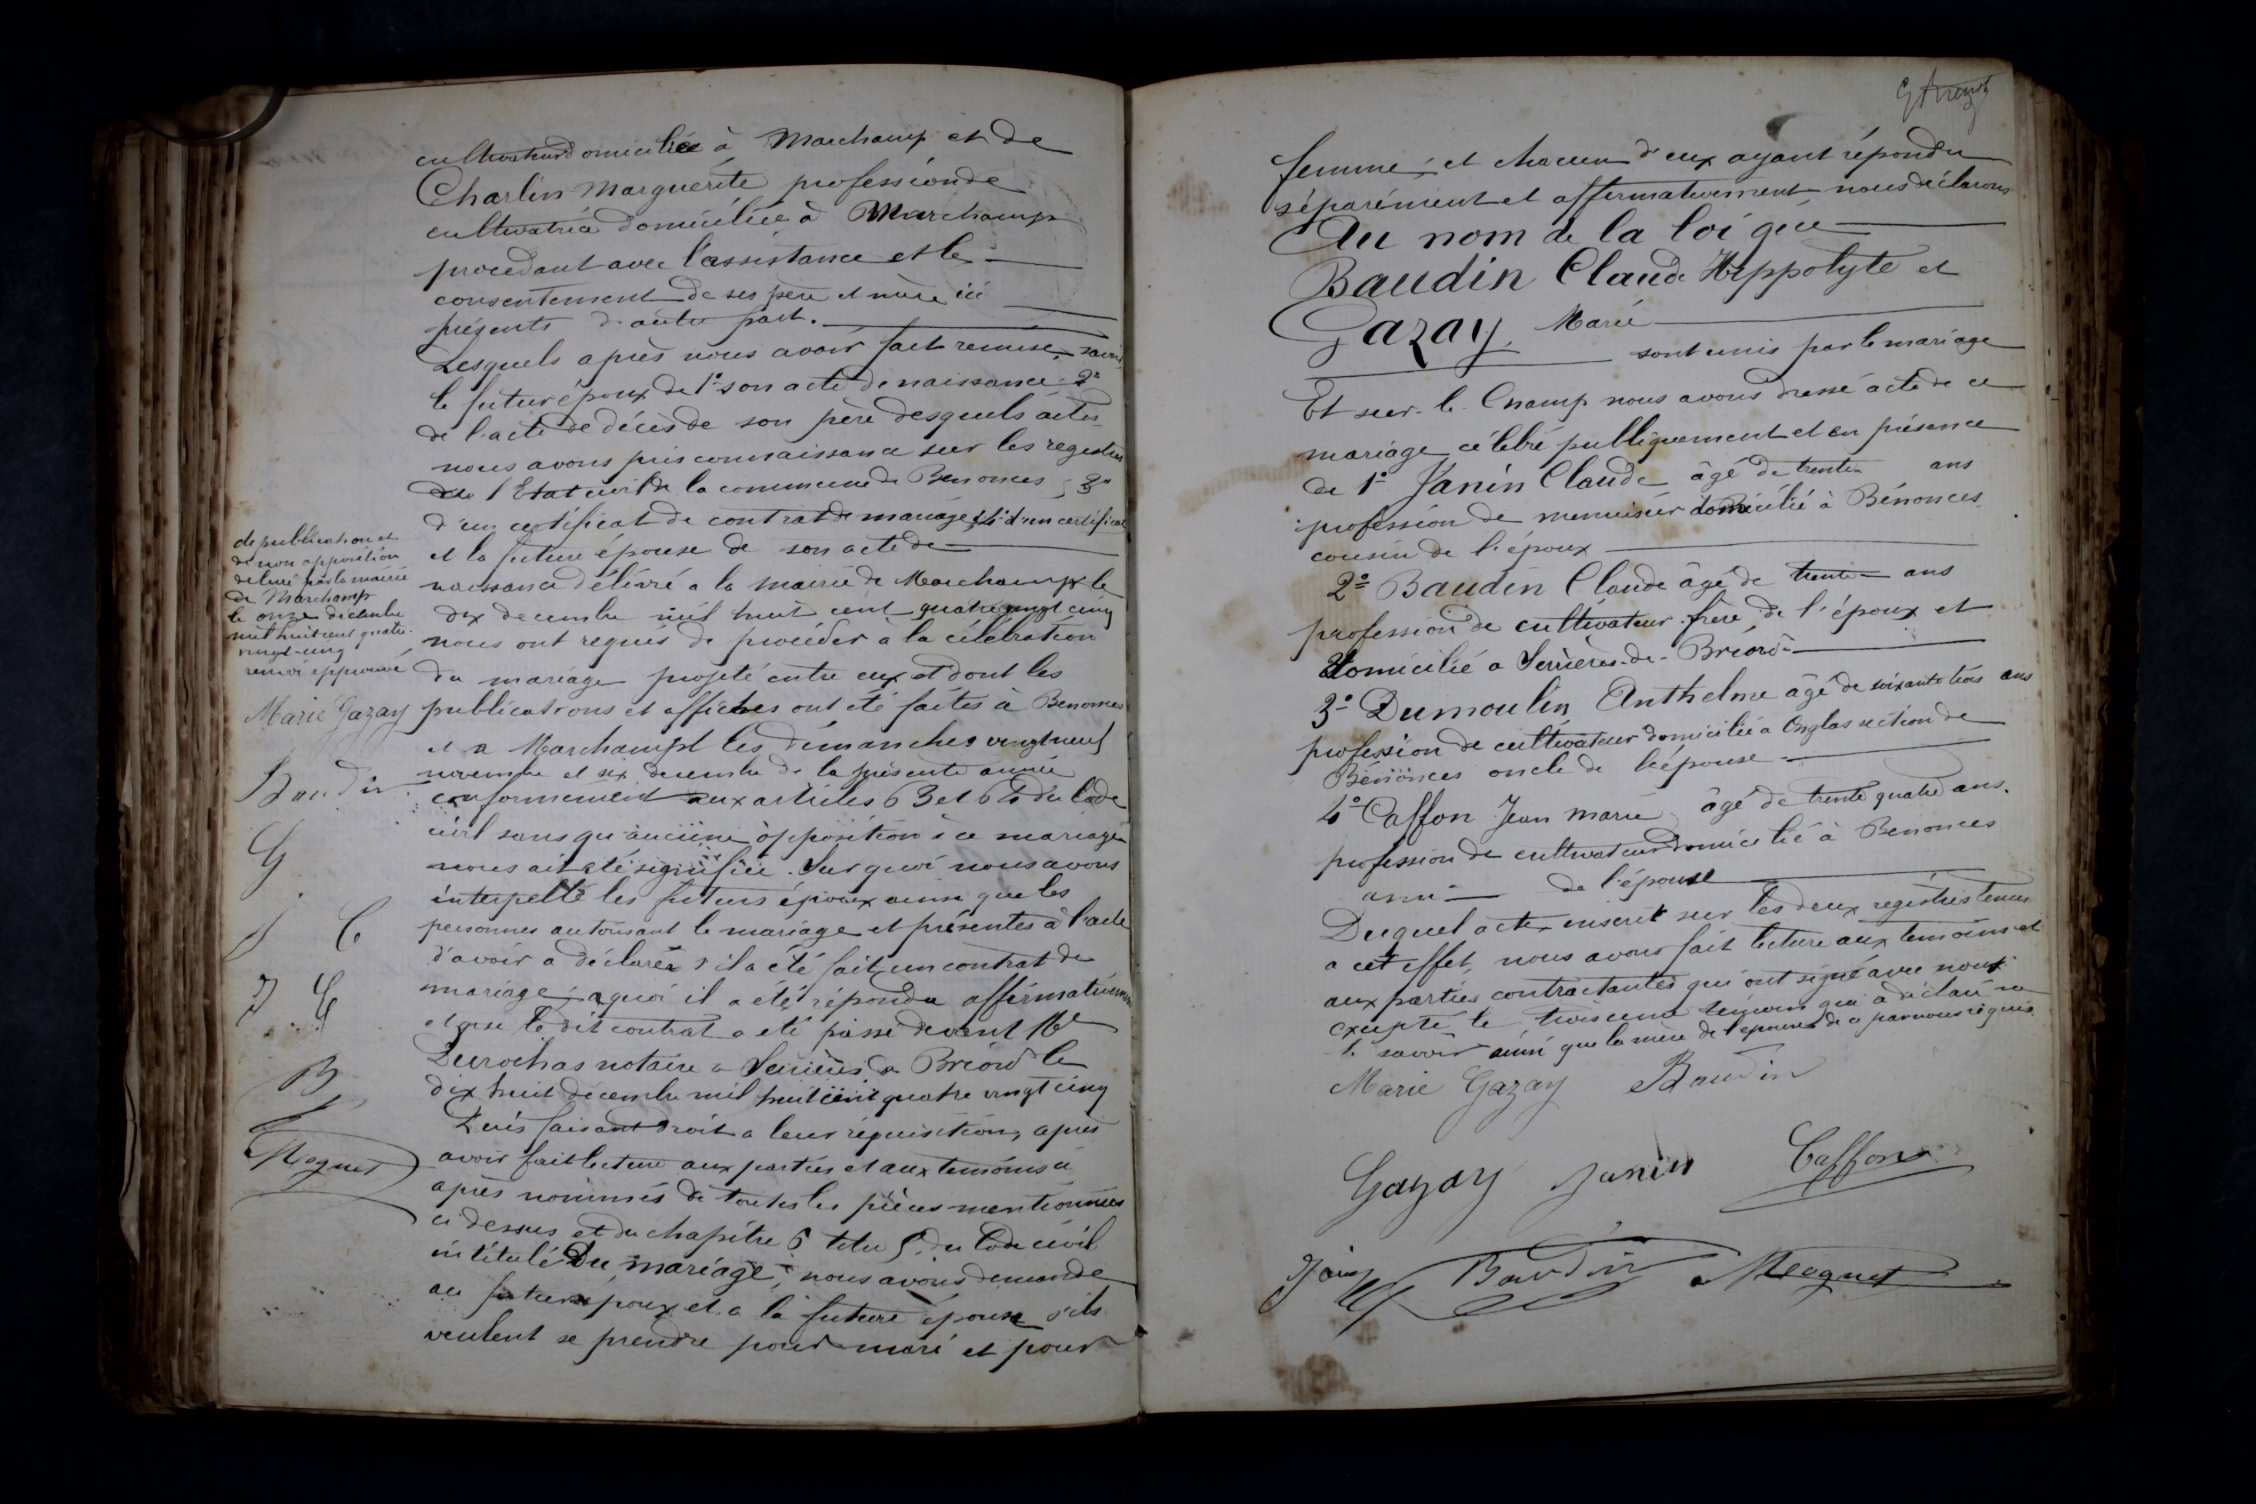 cultivateur domicilié à Marchamp et de
Charlin Marguerite profession de
cultivatrice domiciliée à Marchamp
procédant avec l'assistance et le
consentement de ses père et mère ici
présents d'autre part.
Lesquels après nous avoir fait remise, savoir,
le futur époux de 1° son acte de naissance 2°
de l'acte de décès de son père desquels actes
nous avons pris connaissance sur les registres
de l'Etat civil de la commune de Benonces ; 3°
d'un certificat de contrat de mariage ; 4° d'un certificat
et la future épouse de son acte de
naissance délivré a la mairie de Marchamp le
dix decembre mil huit cent quatre vingt cinq
nous ont requis de procéder à la célébration
du mariage projeté entre eux et dont les
publications et affiches ont été faites à Benonces
et a Marchampt les dimanches vingt neuf
novembre et six decembre de la présente année
conformément aux articles 63 et 64 du Code
civil sans qu'aucune opposition à ce mariage
nous ait été signifiée. Sur quoi nous avons
interpellé les futurs époux ainsi que les
personnes autorisant le mariage et présentes à l'acte
d'avoir à déclarer s'il a été fait un contrat de
mariage ; a quoi il a été répondu affirmativement
et que le dit contrat a été passé devant Me
Durochas notaire a Serrières de Briord le
dix huit décembre mil huit cent quatre vingt cinq
Puis faisant droit a leur réquisition, après
avoir fait lecture aux parties et aux témoins ci
après nommés de toutes les pièces mentionnées
ci dessus et du chapitre 6 titre 5 du Code civil
intitulé Du mariage, nous avons demandé
au futur époux et a la future épouse s'ils
veulent se prendre pour mari et pour
de publication et
de non opposition
délivré par la mairie
de Marchamp
le onze décembre
mil huit cent quatre-
vingt-cinq
renvoi approuvé
Marie Gazay
Baudin
G
J C
J
B
Mognet
femme ; et chacun d'eux ayant répondu
séparément et affirmativement nous déclarons
Au nom de la loi que
Baudin Claude Hippolyte et
Gazay, Marie
sont unis par le mariage
Et sur-le-Champ nous avons dressé acte de ce
mariage célébré publiquement et en présence
de 1° Janin Claude âgé de trente ans
profession de menuisier domicilié à Bénonces
cousin de l'époux
2° Baudin Claude âgé de trente ans
profession de cultivateur frère de l'époux et
domicilié a Serrières-de-Briord
3° Dumoulin Anthelme âgé de soixante trois ans
profession de cultivateur domicilié a Onglas section de
Bénonces oncle de l'épouse
4° Caffon Jean marie âgé de trente quatre ans.
profession de cultivateur domicilié à Benonces
ami de l'épouse
Duquel acte, inscrit sur les deux registres tenus
a cet effet, nous avons fait lecture aux témoins et
aux parties contractantes qui ont signé avec nous
excepté le troisième témoin qui a déclaré ne
le savoir ainsi que la mère de l'épouse de ce par nous requis
Marie Gazay Baudin
Gazay Janin Caffon
Baudin Mognet